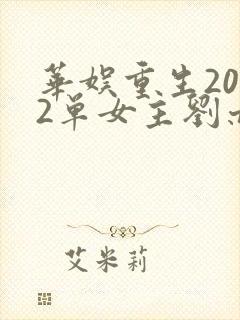 華娱重生20
2单女主劉
艾米莉